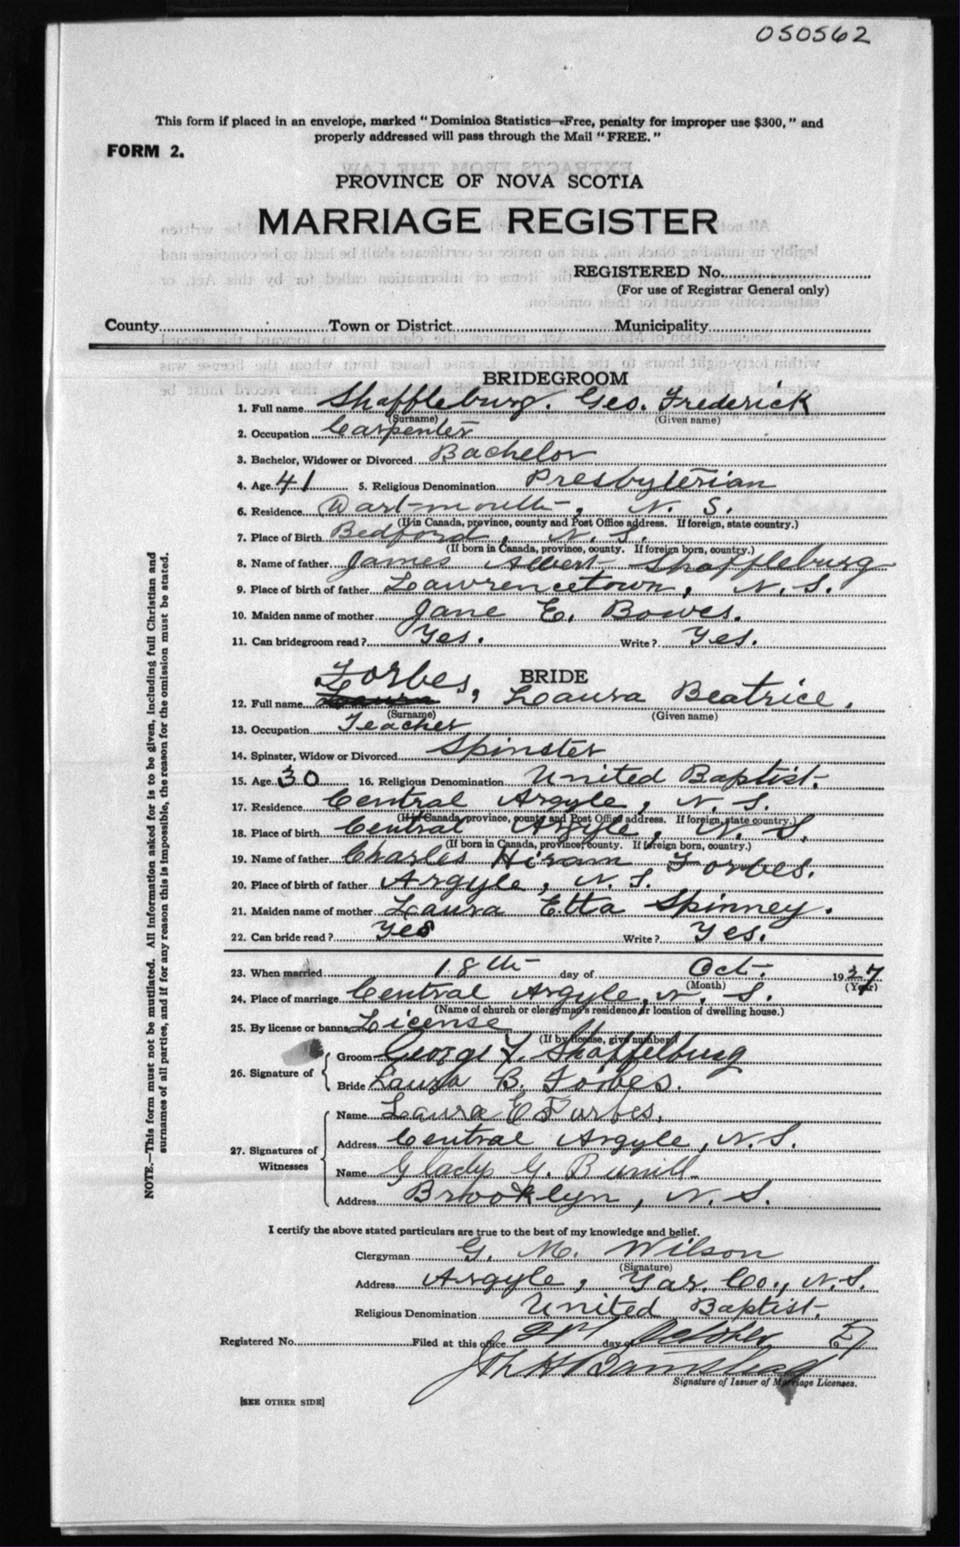 050562
This form if placed in an envelope, marked "Dominion Statistics—Free, penalty for improper use $300," and
properly addressed will pass through the Mail "FREE."
FORM 2.
PROVINCE OF NOVA SCOTIA
MARRIAGE REGISTER
REGISTERED No.
(For use of Registrar General only)
County Town or District Municipality
BRIDEGROOM
1. Full name Shaffleburg. Geo. Frederick
(Surname) (Given name)
2. Occupation Carpenter
3. Bachelor, Widower or Divorced Bachelor
4. Age 41 5. Religious Denomination Presbyterian
6. Residence Dartmouth, N. S.
(If in Canada, province, county and Post Office address. If foreign, state country.)
7. Place of Birth Bedford, N. S.
(If born in Canada, province, county. If foreign born, country.)
8. Name of father James Albert Shaffleburg
9. Place of birth of father Lawrencetown, N. S.
10. Maiden name of mother Jane E. Bowes.
11. Can bridegroom read? Yes. Write? Yes.
BRIDE
12. Full name Forbes, Laura Beatrice.
(Surname) (Given name)
13. Occupation Teacher
14. Spinster, Widow or Divorced Spinster
15. Age 30 16. Religious Denomination United Baptist.
17. Residence Central Argyle, N. S.
(If in Canada, province, county and Post Office address. If foreign, state country.)
18. Place of birth Central Argyle, N. S.
(If born in Canada, province, county. If foreign born, country.)
19. Name of father Charles Hiram Forbes.
20. Place of birth of father Argyle, N. S.
21. Maiden name of mother Laura Etta Spinney.
22. Can bride read? Yes Write? Yes.
23. When married 18th day of Oct. 1927
(Month) (Year)
24. Place of marriage Central Argyle, N. S.
(Name of church or clergyman's residence or location of dwelling house.)
25. By license or banns License
(If by license, give number)
26. Signature of Groom George F. Shaffelburg
Bride Laura B. Forbes.
27. Signatures of Witnesses Name Laura E Forbes.
Address Central Argyle, N. S.
Name Gladys G.
Address Brooklyn, N. S.
I certify the above stated particulars are true to the best of my knowledge and belief.
Clergyman G. M. Wilson
(Signature)
Address Argyle, Yar. Co., N. S.
Religious Denomination United Baptist.
Registered No. Filed at this office day of October 27
Signature of Issuer of Marriage Licenses.
[SEE OTHER SIDE]
NOTE.—This form must not be mutilated. All information asked for is to be given, including full Christian and
surnames of all parties, and if for any reason this is impossible, the reason for the omission must be stated.